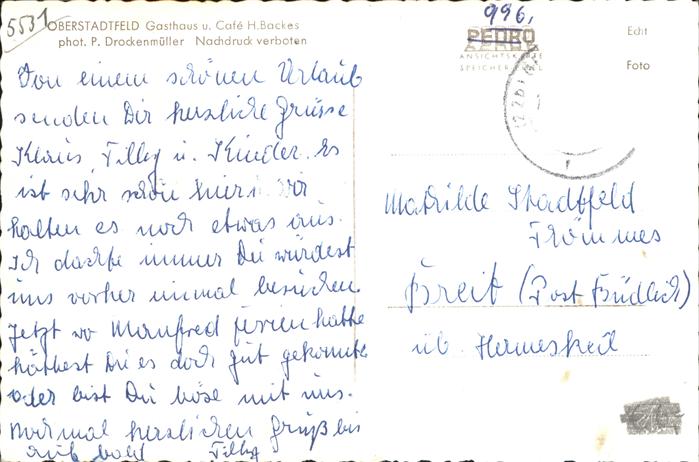 5531
OBERSTADTFELD Gasthaus u. Café H. Backes
phot. P. Drockenmüller Nachdruck verboten
Von einem schönen Urlaub
senden Dir herzliche Grüsse
Klaus, Tilly u. Kinder. Es
ist sehr schön hier. Wir
halten es noch etwas aus.
Ich dachte immer Du würdest
uns vorher einmal besuchen.
Jetzt wo Manfred ferien hatte
hättest Du es doch gut gekonnt
oder bist Du böse mit uns.
Nochmal herzlichen Gruß bis
auf bald Tilly
996,
PEDRO
ANSICHTSKARTE
SPEICHER
Echt
Foto
Mathilde Stadtfeld
Breit (Post Büdlich)
üb. Hermeskeil